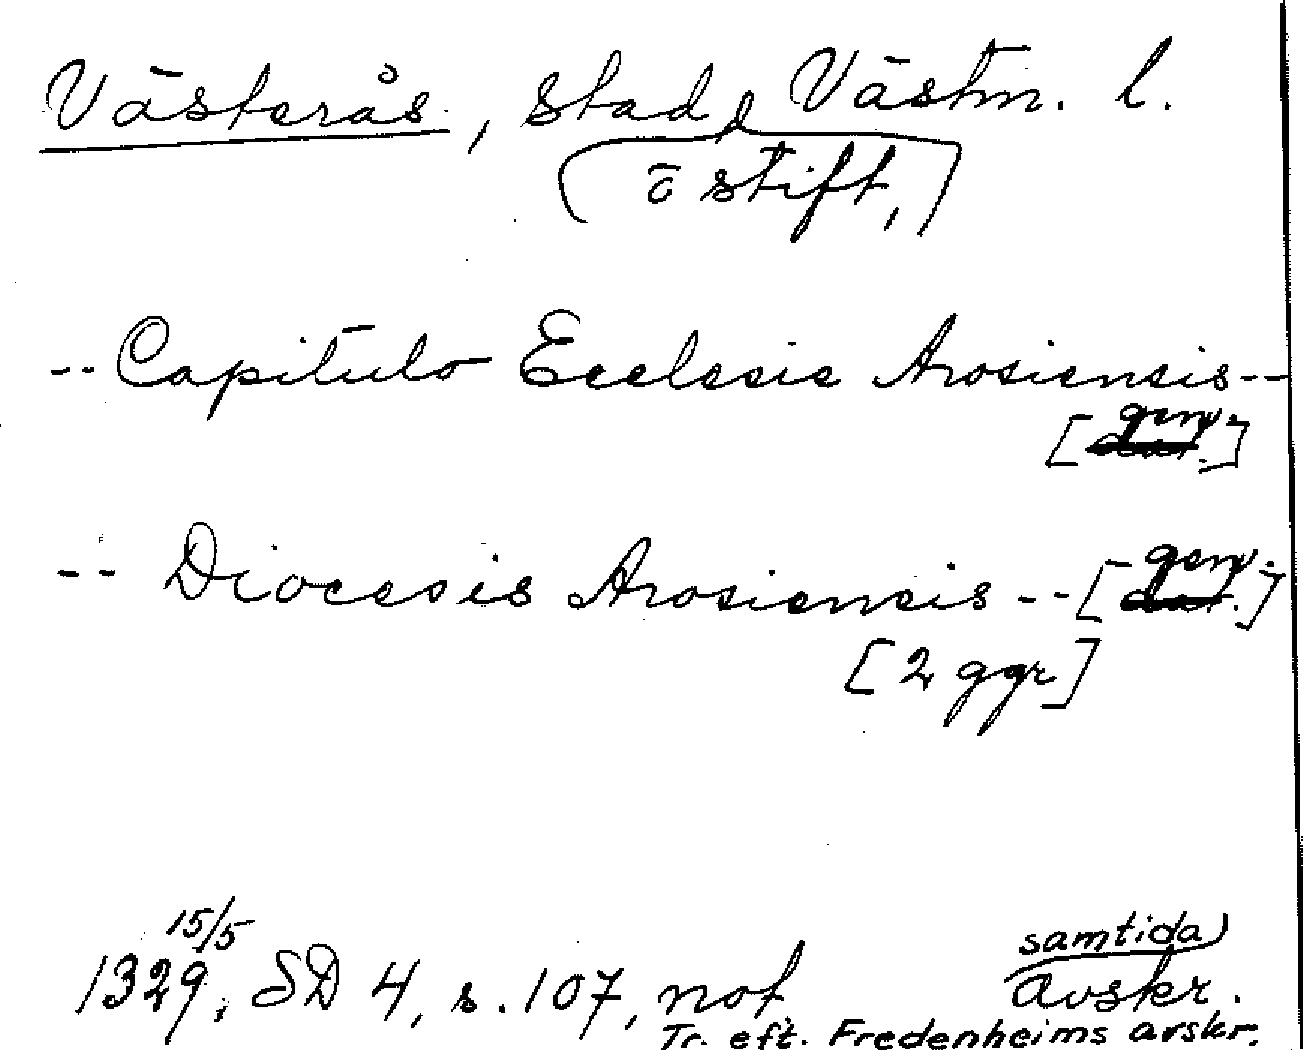 Västerås, stad, Västm. l.
o stift,
-- Capitulo Ecclesie Arosiensis --
[gen.]
-- Diocesis Arosiensis -- [gen.]
[2 ggr]
15/5
1329, SD 4, s. 107, not
samtida
avskr.
Tr. eft. Fredenheims avskr.